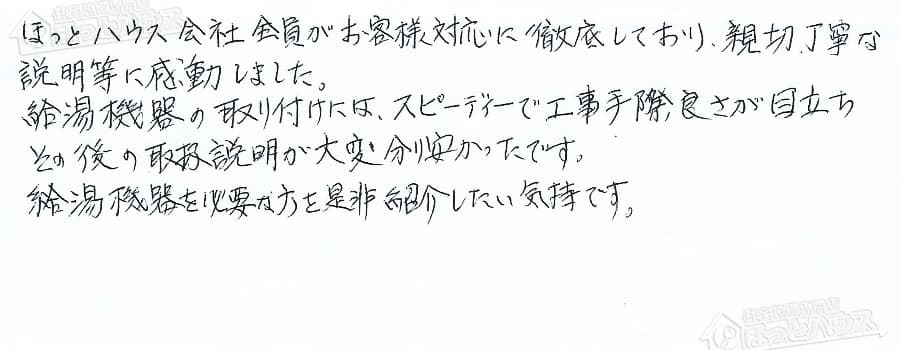 ほっとハウス会社全員がお客様対応に徹底しており、親切丁寧な
説明等に感動しました。
給湯機器の取り付けには、スピーディーで工事手際良さが目立ち
その後の取扱説明が大変分り安かったです。
給湯機器を必要な方を是非紹介したい気持です。
住宅設備専門店
ほっとハウス
住宅設備専門店
ほっとハウス